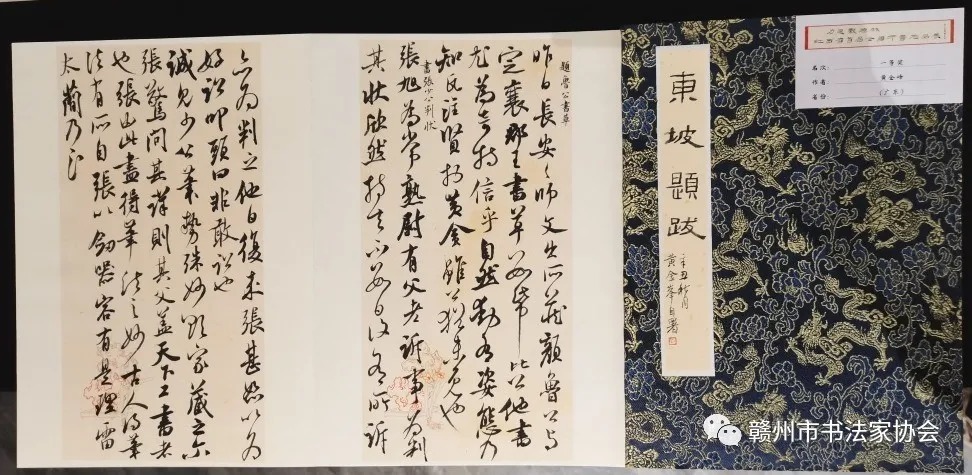 名次: 一等奖
作者: 黄金峰
東坡題跋
辛丑秋月
黄金峯自署
題魯公書草
昨日長安〻師文出所藏顏魯公與
定襄郡王書草數帋比公他書
尤為奇特信手自然動有姿態乃
知瓦注賢於黃金雖公猶未免也
書張少公判狀
張旭為常熟尉有父老訴事為判
其狀欣然持去不數日復有所訴
亦為判之他日復來張甚怒以為
好訟叩頭曰非敢訟也
誠見少公筆勢殊妙欲家藏之尔
張驚問其詳則其父盖天下工書者
也張由此盡得筆法之妙古人得筆
法有所自張以劍器容有是理雷
太簡乃云
赣州市书法家协会